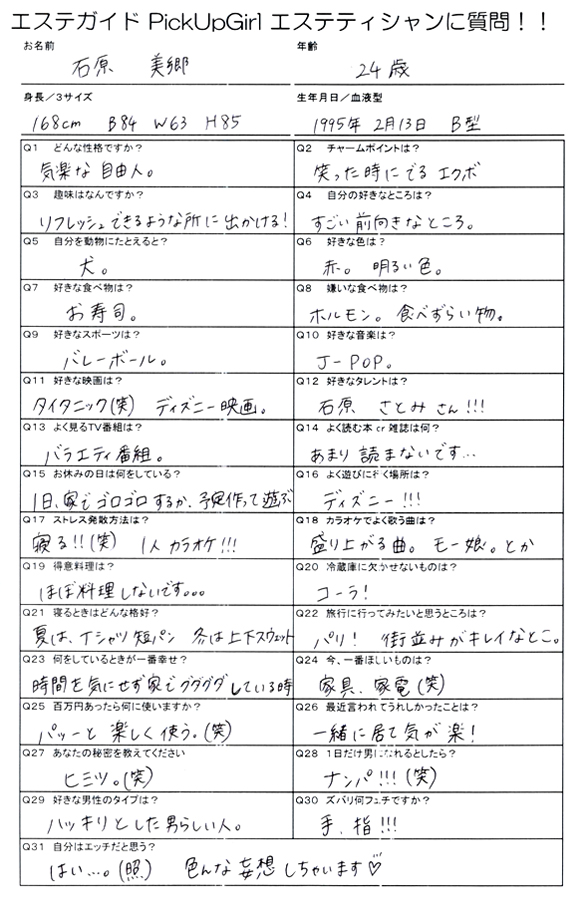 エステガイド PickUpGirl エステティシャンに質問！！
お名前 年齢
石原 美郷 24歳
身長／3サイズ 生年月日／血液型
168cm B84 W63 H85 1995年 2月13日 B型
Q1 どんな性格ですか？ Q2 チャームポイントは？
気楽な自由人。 笑った時にでるエクボ
Q3 趣味はなんですか？ Q4 自分の好きなところは？
リフレッシュできるような所に出かける! すごい前向きなところ。
Q5 自分を動物にたとえると？ Q6 好きな色は？
犬。 赤。 明るい色。
Q7 好きな食べ物は？ Q8 嫌いな食べ物は？
お寿司。 ホルモン。 食べずらい物。
Q9 好きなスポーツは？ Q10 好きな音楽は？
バレーボール。 J-POP。
Q11 好きな映画は？ Q12 好きなタレントは？
タイタニック(笑) ディズニー映画。 石原 さとみ さん!!!
Q13 よく見るTV番組は？ Q14 よく読む本 or 雑誌は何？
バラエティ番組。 あまり 読まないです…
Q15 お休みの日は何をしている？ Q16 よく遊びに行く場所は？
1日、家でゴロゴロするか、予定作って遊ぶ ディズニー!!!
Q17 ストレス発散方法は？ Q18 カラオケでよく歌う曲は？
寝る!!(笑) 1人カラオケ!!! 盛り上がる曲。 モー娘。とか
Q19 得意料理は？ Q20 冷蔵庫に欠かせないものは？
ほぼ料理しないです。。。 コーラ!
Q21 寝るときはどんな格好？ Q22 旅行に行ってみたいと思うところは？
夏は、Tシャツ短パン 冬は上下スウェット パリ! 街並みがキレイなとこ。
Q23 何をしているときが一番幸せ？ Q24 今、一番ほしいものは？
時間を気にせず家でグダグダしている時 家具、家電(笑)
Q25 百万円あったら何に使いますか？ Q26 最近言われてうれしかったことは？
パッーと 楽しく使う。(笑) 一緒に居て気が楽!
Q27 あなたの秘密を教えてください Q28 1日だけ男になれるとしたら？
ヒミツ。(笑) ナンパ!!!(笑)
Q29 好きな男性のタイプは？ Q30 ズバリ何フェチですか？
ハッキリとした男らしい人。 手、指!!!
Q31 自分はエッチだと思う？
はい…。(照) 色んな妄想しちゃいます♡